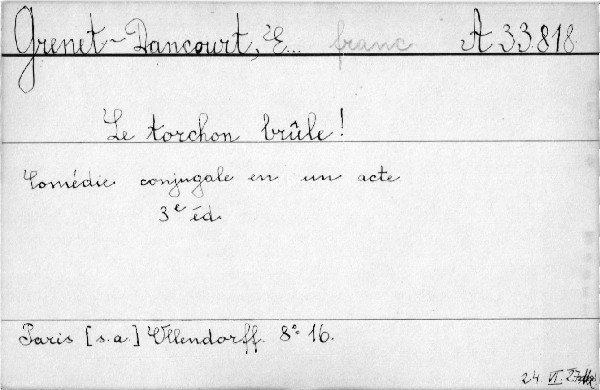 Grenet-Dancourt, E... franc A 33.818
Le torchon brûle!
Comédie conjugale en un acte
3e éd.
Paris [s.a.] Ollendorff. 8° 16.
24. VI. 27.